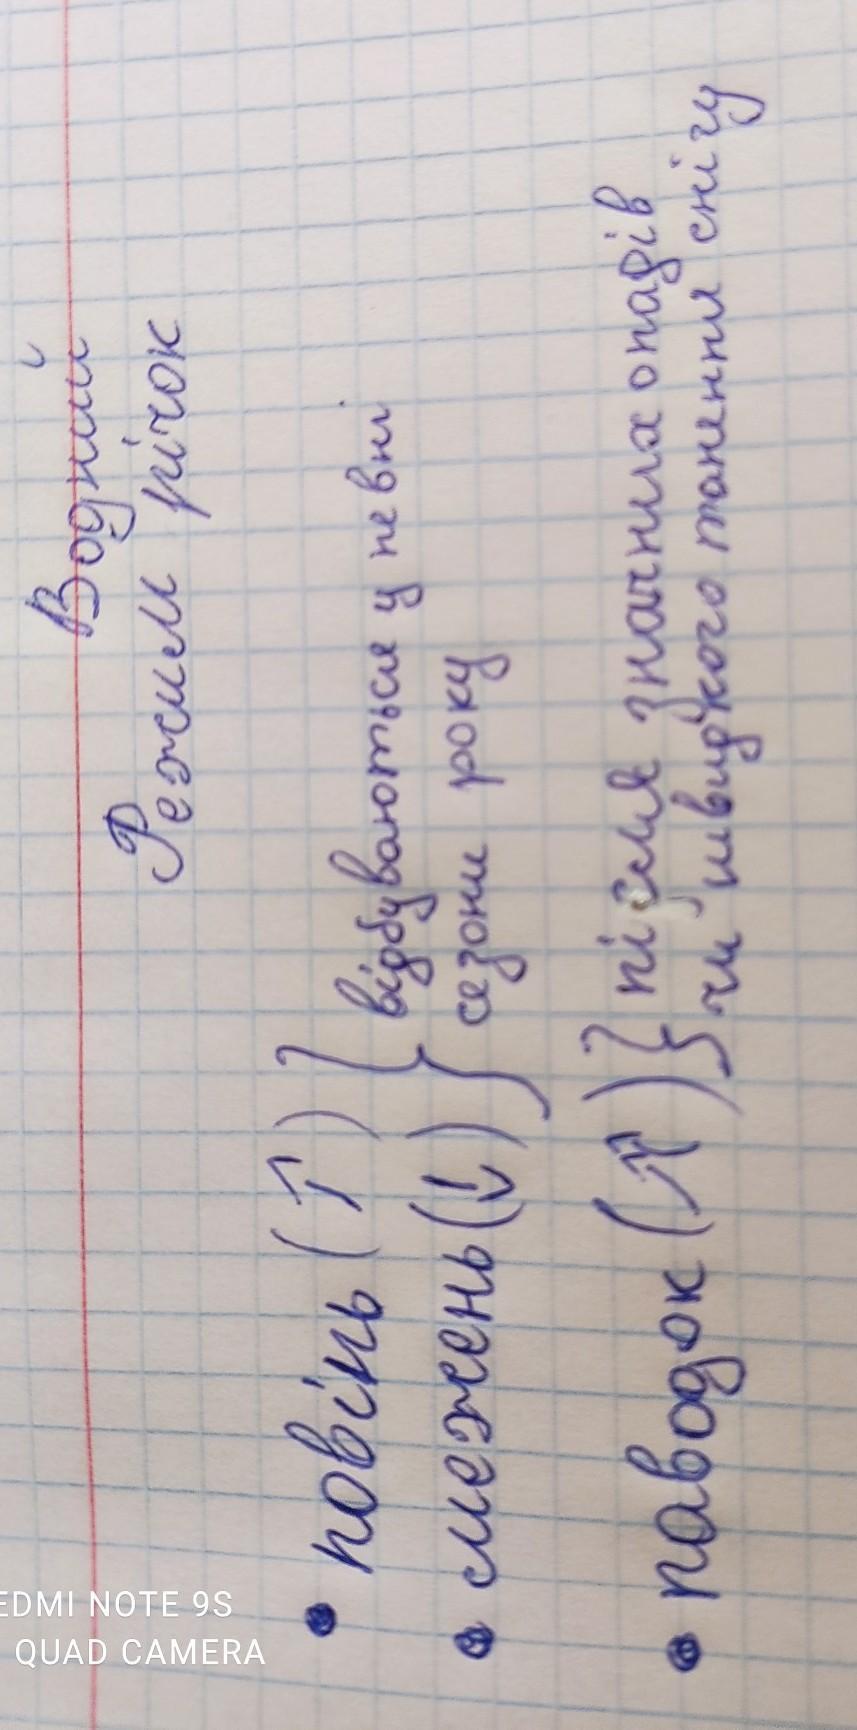 Водний
Режим річок
• повінь (↑) } відбуваються у певні
• межень (↓) } сезони року
• паводок (↑) } після значних опадів
чи швидкого танення снігу
REDMI NOTE 9S
QUAD CAMERA